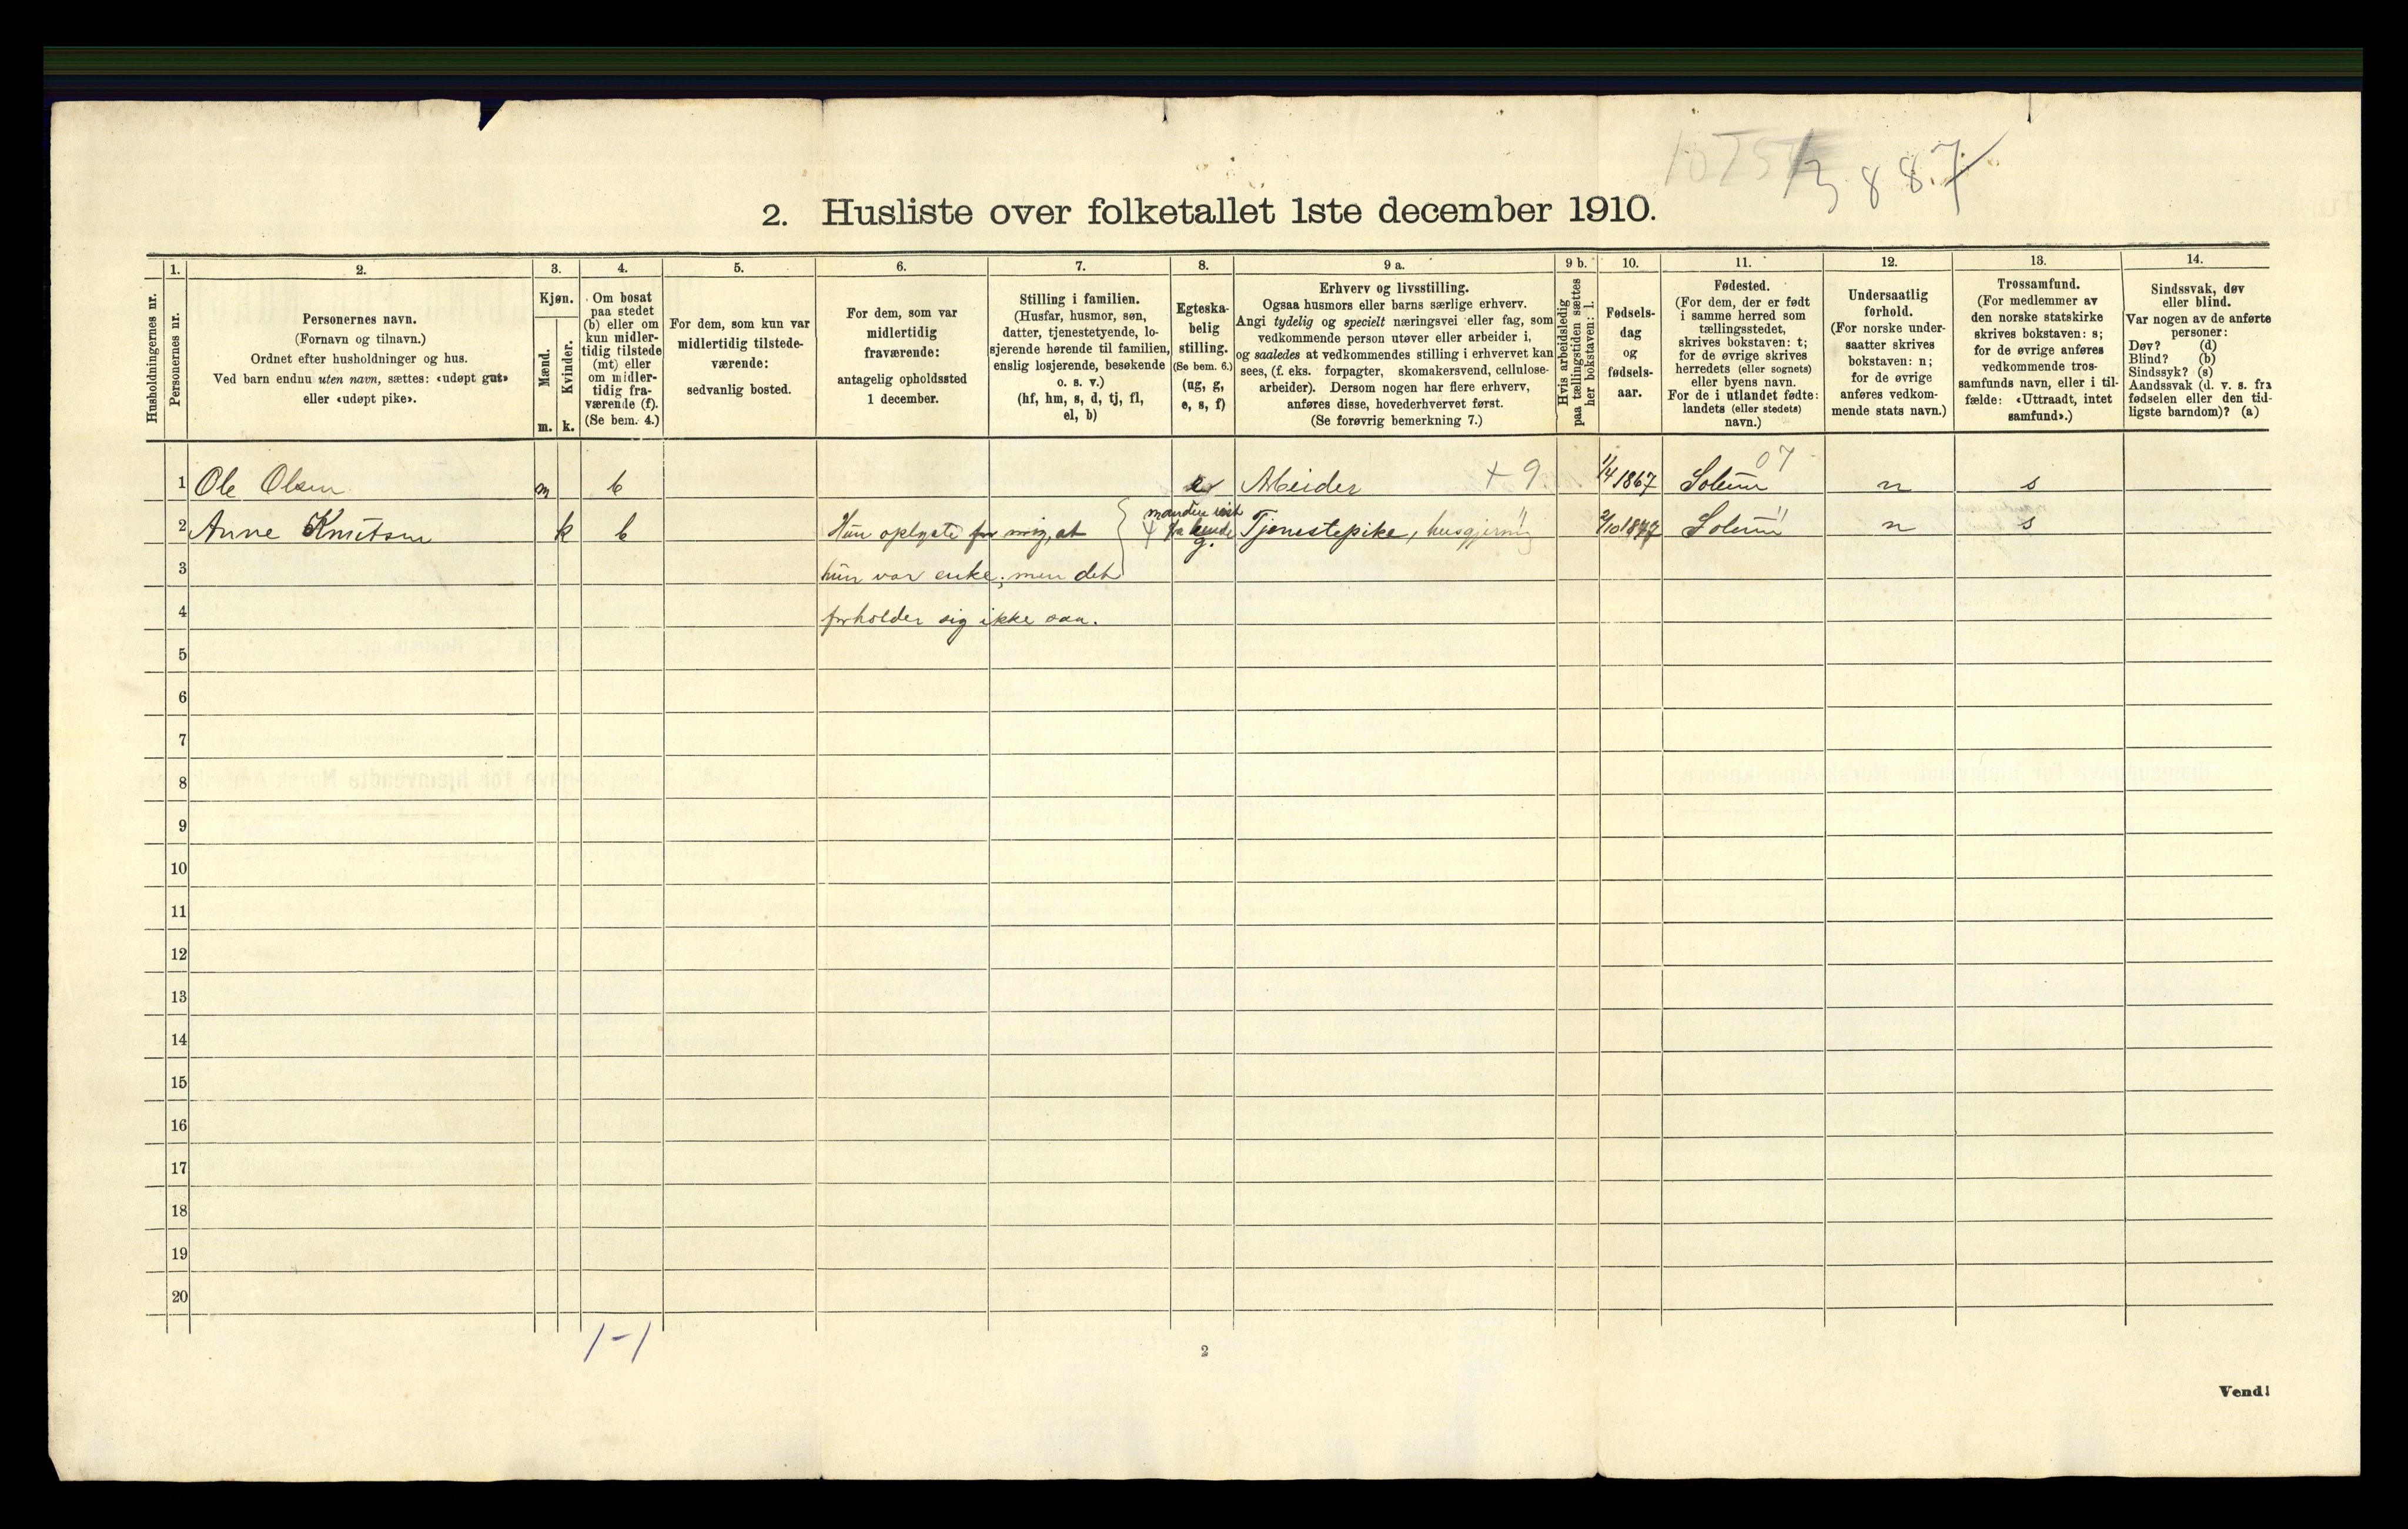 3887
2. Husliste over folketallet 1ste december 1910.
Husholdningernes nr.
1.
Personernes nr.
2.
Personernes navn.
(Fornavn og tilnavn.)
Ordnet efter husholdninger og hus.
Ved barn endnu uten navn, sættes: «udøpt gut»
eller «udøpt pike».
3.
Kjøn.
Mænd.
Kvinder.
m. k.
4.
Om bosat
paa stedet
(b) eller om
kun midler-
tidig tilstede
(mt) eller
om midler-
tidig fra-
værende (f).
(Se bem. 4.)
5.
For dem, som kun var
midlertidig tilstede-
værende:
sedvanlig bosted.
6.
For dem, som var
midlertidig
fraværende:
antagelig opholdssted
1 december.
7.
Stilling i familien.
(Husfar, husmor, søn,
datter, tjenestetyende, lo-
sjerende hørende til familien,
enslig losjerende, besøkende
o. s. v.)
(hf, hm, s, d, tj, fl,
el, b)
8.
Egteska-
belig
stilling.
(Se bem. 6.)
(ug, g,
e, s, f)
9 a.
Erhverv og livsstilling.
Ogsaa husmors eller barns særlige erhverv.
Angi tydelig og specielt næringsvei eller fag, som
vedkommende person utøver eller arbeider i,
og saaledes at vedkommendes stilling i erhvervet kan
sees, (f. eks. forpagter, skomakersvend, cellulose-
arbeider). Dersom nogen har flere erhverv,
anføres disse, hovederhvervet først.
(Se forøvrig bemerkning 7.)
9 b.
Hvis arbeidsledig
paa tællingstiden sættes
her bokstaven: l.
10.
Fødsels-
dag
og
fødsels-
aar.
11.
Fødested.
(For dem, der er født
i samme herred som
tællingsstedet,
skrives bokstaven: t;
for de øvrige skrives
herredets (eller sognets)
eller byens navn.
For de i utlandet fødte:
landets (eller stedets)
navn.)
12.
Undersaatlig
forhold.
(For norske under-
saatter skrives
bokstaven: n;
for de øvrige
anføres vedkom-
mende stats navn.)
13.
Trossamfund.
(For medlemmer av
den norske statskirke
skrives bokstaven: s;
for de øvrige anføres
vedkommende tros-
samfunds navn, eller i til-
fælde: «Uttraadt, intet
samfund».)
14.
Sindssvak, døv
eller blind.
Var nogen av de anførte
personer:
Døv? (d)
Blind? (b)
Sindssyk? (s)
Aandssvak (d. v. s. fra
fødselen eller den tid-
ligste barndom)? (a)
07
1 Ole Olsen m b e Arbeider + 9 1/4 1867 Solum n s
manden reist
2 Anne Knutsen k b Hun oplyste for mig, at fra hende g. Tjenestepike, husgjerning " 2/10 1877 Solum " n s
3 hun var enke; men det
4 forholder sig ikke saa.
5
6
7
8
9
10
11
12
13
14
15
16
17
18
19
20
1-1
2
Vend!